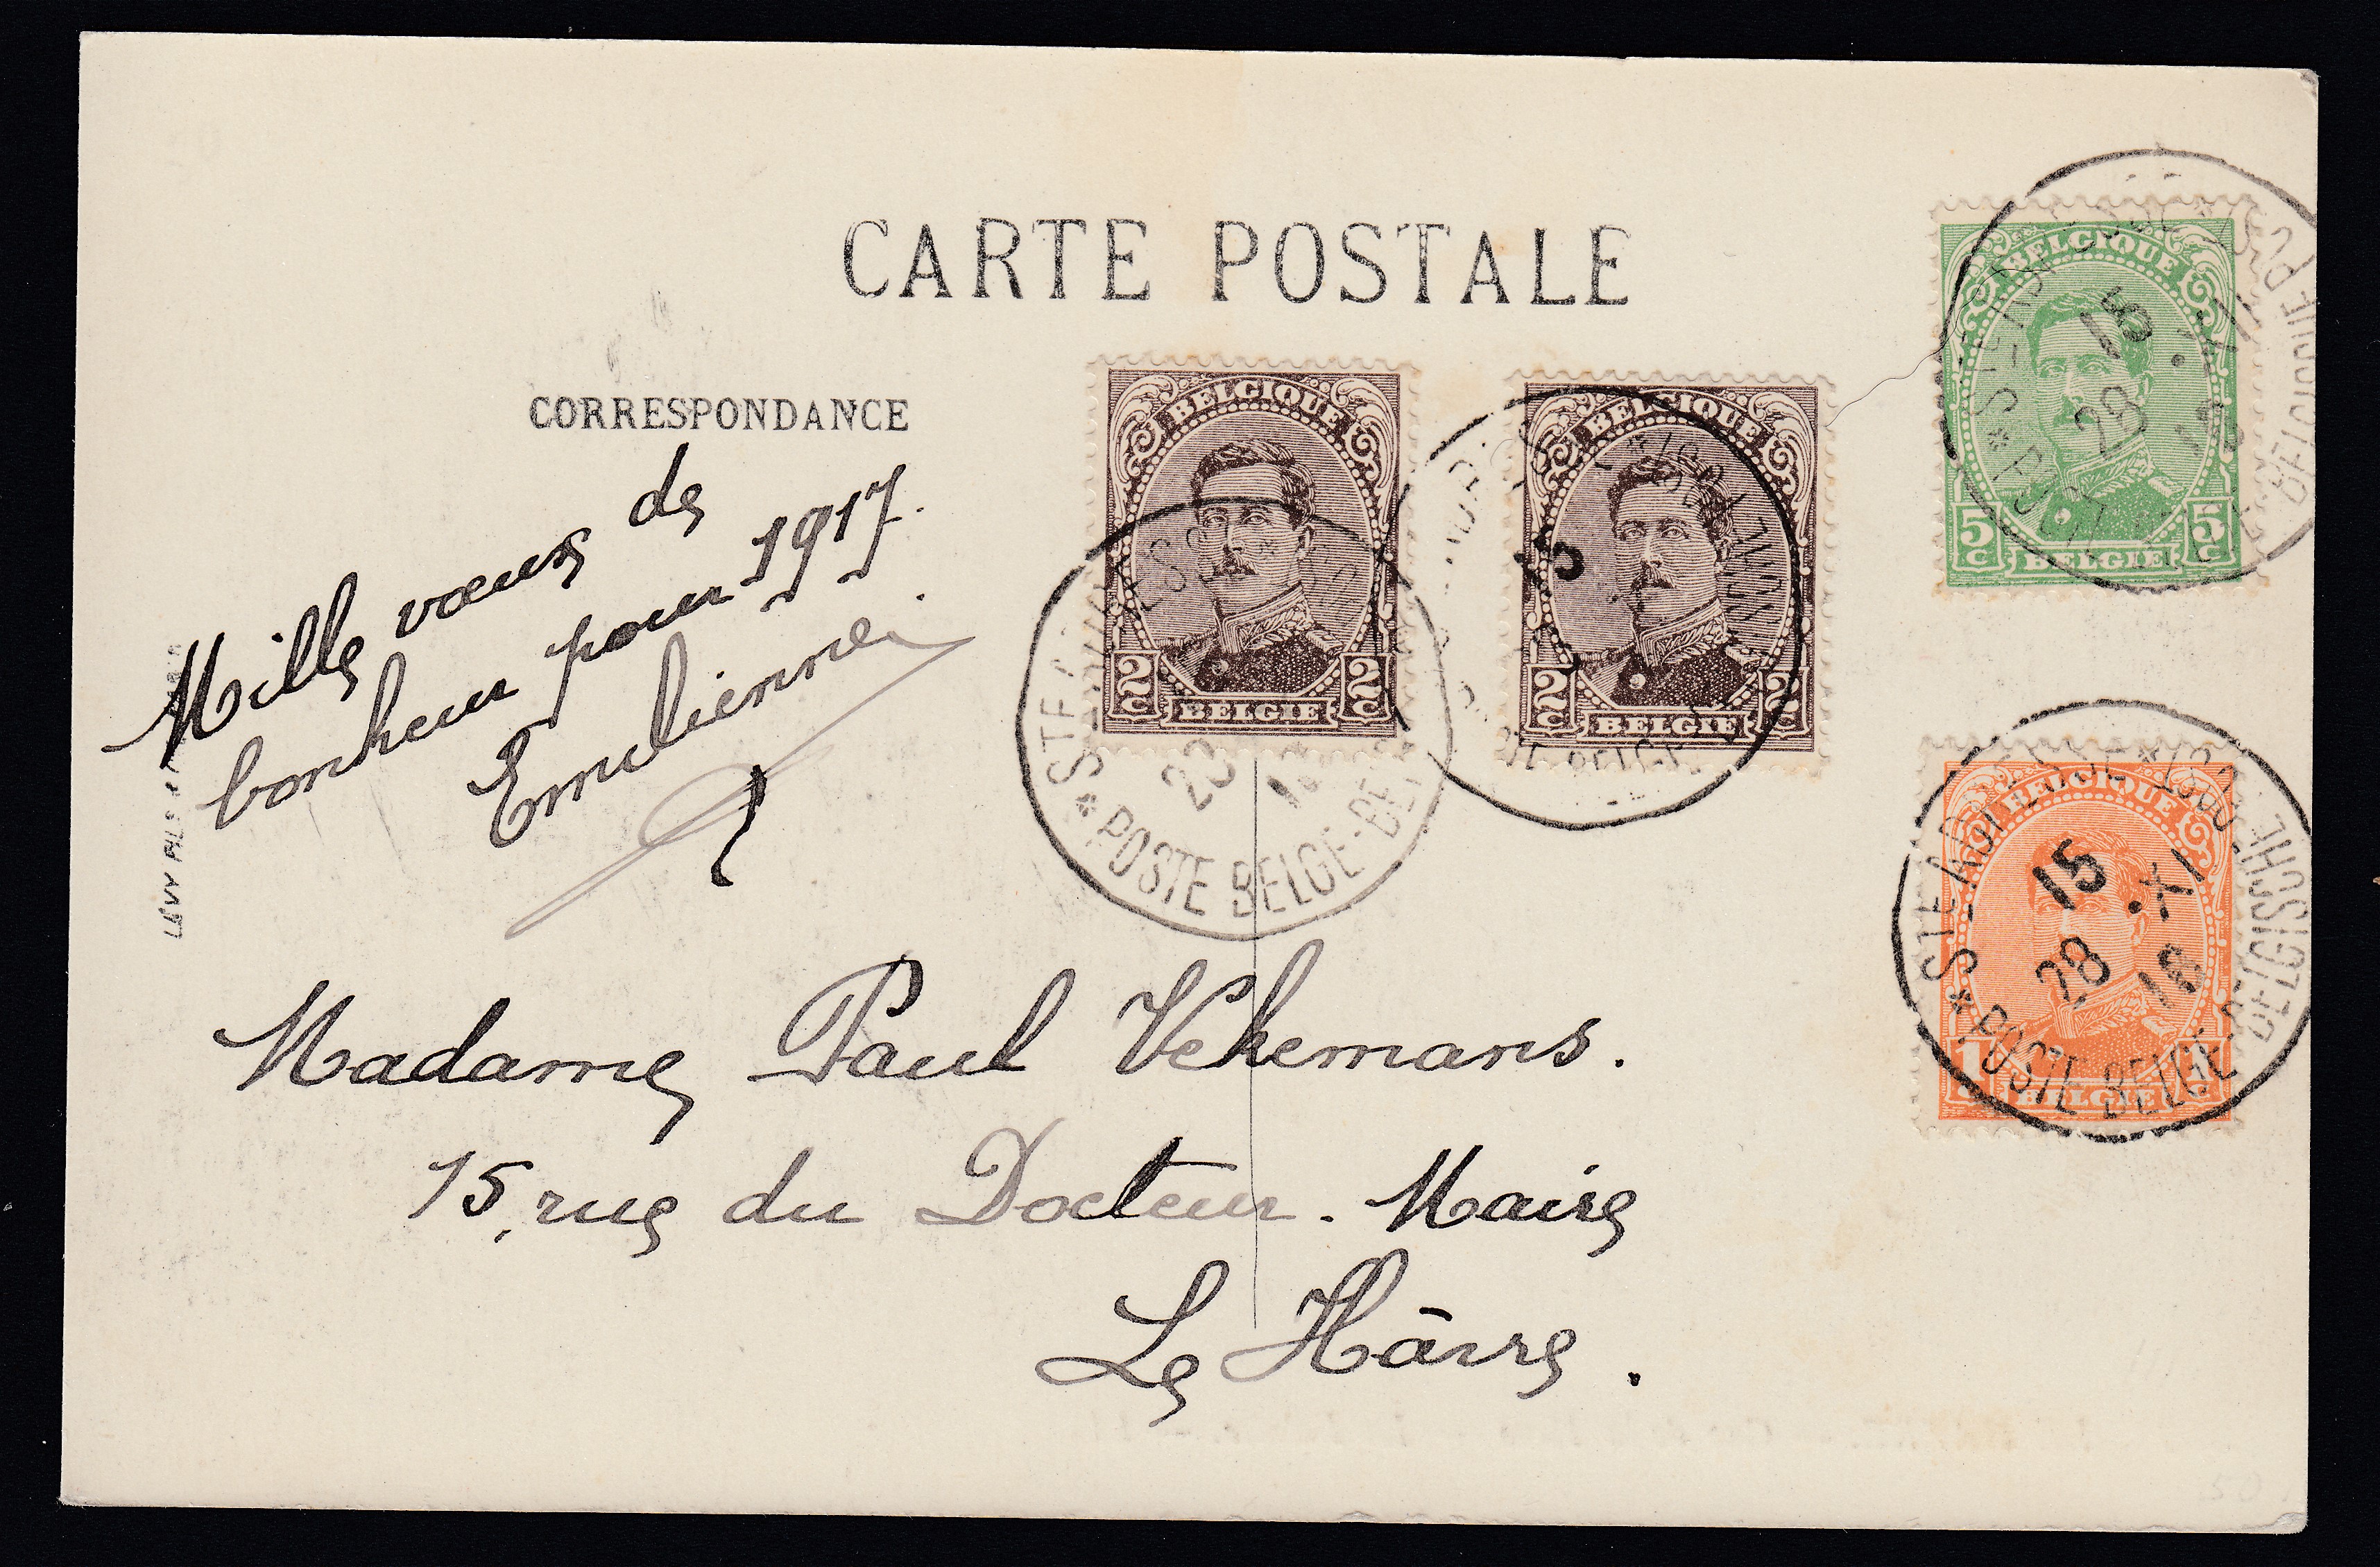 CARTE POSTALE
CORRESPONDANCE
Mille vœux de
bonheur pour 1917.
Emilienne.
LÉVY FILS &
BELGIQUE
2C 2C
BELGIE
BELGIQUE
2C 2C
BELGIE
BELGIQUE
5C 5C
BELGIE
BELGIQUE
1C
BELGIE
STE ADRESSE
28
* POSTE BELGE-BE
15
STE AD
15 XI
28
BELGISCHE POST
STE ADRESSE
15 XI
28 16
* POSTE BELGE-BELGISCHE POST
Madame Paul Vekemans.
15, rue du Docteur. Maire
Le Hâvre.